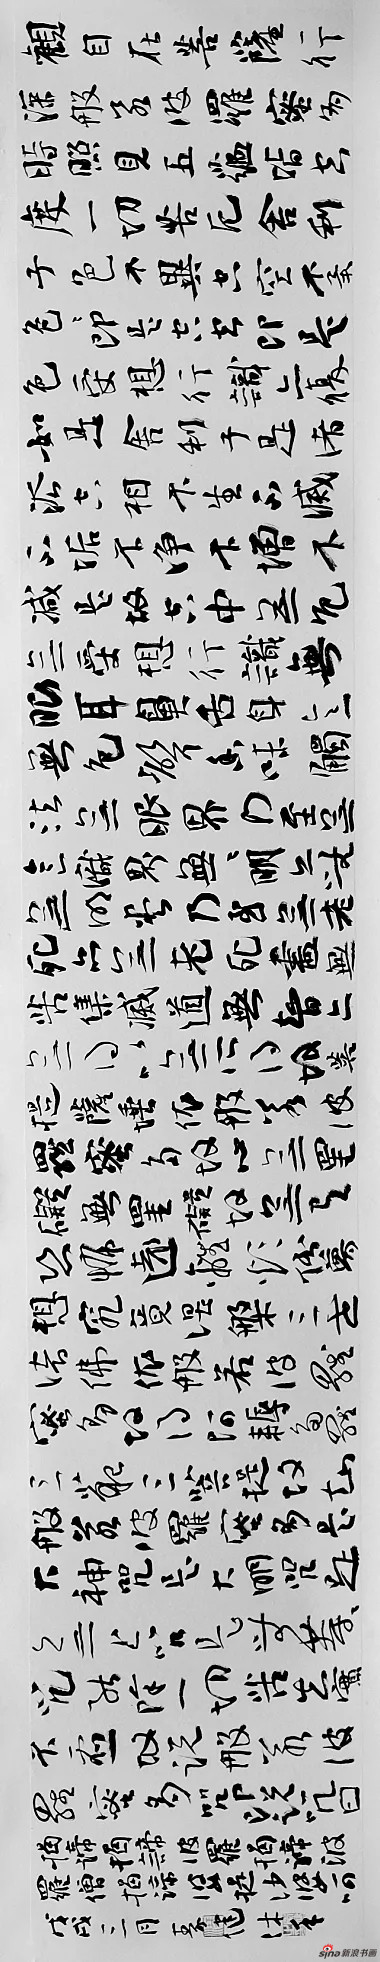 觀自在菩薩行
深般若波羅蜜多
時照見五蘊皆空
度一切苦厄舍利
子色不異空空不異
色色即是空空即是
色受想行識亦復
如是舍利子是諸
法空相不生不滅
不垢不净不增不
减是故空中無色
無受想行識無
眼耳鼻舌身意
無色聲香味觸
法無眼界乃至無
意識界無無明亦無
無明盡乃至無老
死亦無老死盡無
苦集滅道無智亦
無得以無所得故菩
提薩埵依般若波
羅蜜多故心無罣
礙無罣礙故無有
恐怖遠離顛倒夢
想究竟涅槃三世
諸佛依般若波羅
蜜多故得阿耨多羅
三藐三菩提故知
般若波羅蜜多是
大神咒是大明咒是
無上咒是無等等
咒能除一切苦真實
不虛故説般若波
羅蜜多咒即説咒曰
揭諦揭諦波羅揭諦波
羅僧揭諦菩提薩婆訶
戊戌三月
sina新浪书画